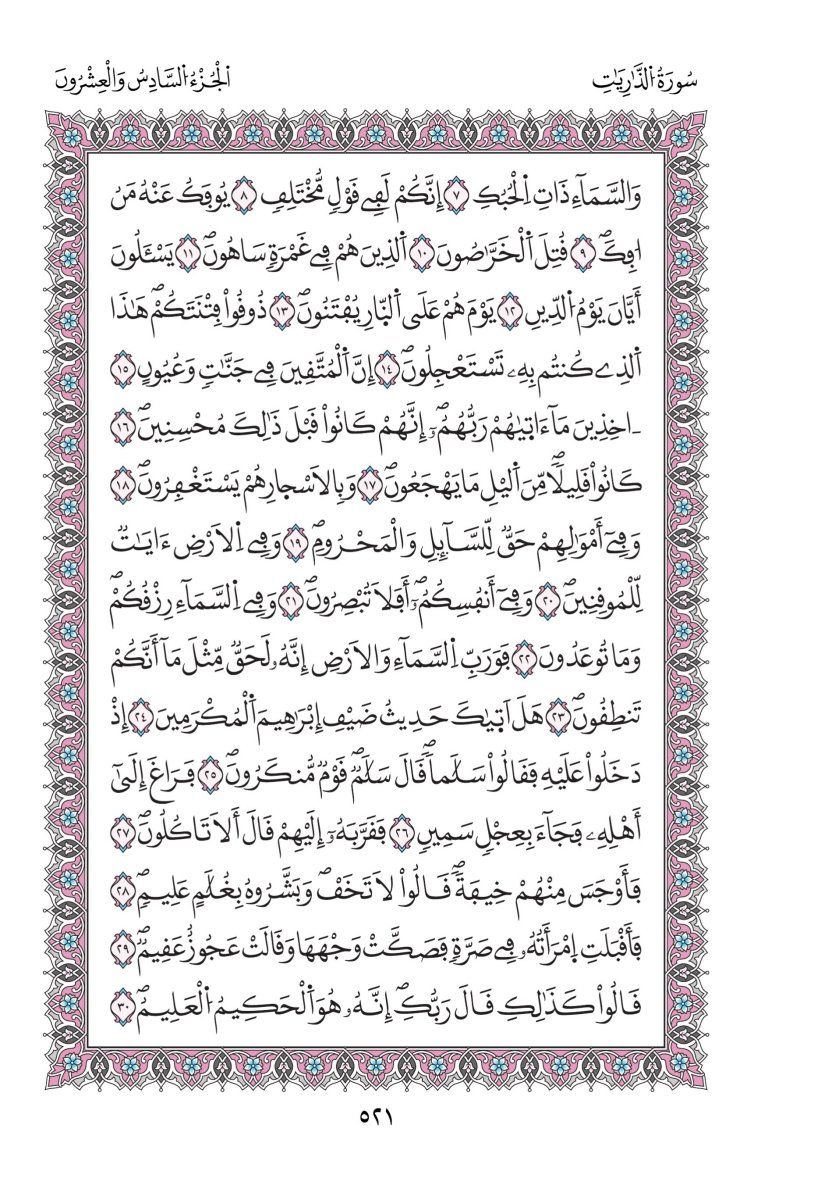 سُورَةُ اُ۬لذَّٰرِيَٰتِ
اَ۬لْجُزْءُ اُ۬لسَّادِسُ وَالْعِشْرُونَ
وَالسَّمَآءِ ذَاتِ اِ۬لْحُبُكِ ٧ إِنَّكُمْ لَفِے قَوْلٖ مُّخْتَلِفٖ ٨ يُوفَكُ عَنْهُ مَنُ
ا۟فِكَۖ ٩ قُتِلَ اَ۬لْخَرَّٰصُونَ ١٠ اَ۬لذِينَ هُمْ فِے غَمْرَةٖ سَاهُونَۖ ١١ يَسْـَٔلُونَ
أَيَّانَ يَوْمُ اُ۬لدِّينِ ١٢ يَوْمَ هُمْ عَلَي اَ۬لنّ۪ارِ يُفْتَنُونَۖ ١٣ ذُوقُواْ فِتْنَتَكُمْۖ هَٰذَا
اَ۬لذِے كُنتُم بِهِۦ تَسْتَعْجِلُونَۖ ١٤ إِنَّ اَ۬لْمُتَّقِينَ فِے جَنَّٰتٖ وَعُيُونٍ ١٥
ـ اخِذِينَ مَآ ءَات۪يٰهُمْ رَبُّهُمُۥٓۖ إِنَّهُمْ كَانُواْ قَبْلَ ذَٰلِكَ مُحْسِنِينَۖ ١٦
كَانُواْ قَلِيلاٗ مِّنَ اَ۬ليْلِ مَا يَهْجَعُونَۖ ١٧ وَبِالَاسْح۪ارِ هُمْ يَسْتَغْفِرُونَۖ ١٨
وَفِےٓ أَمْوَٰلِهِمْ حَقّٞ لِّلسَّآئِلِ وَالْمَحْرُومِۖ ١٩ وَفِے اِ۬لَارْضِ ءَايَٰتٞ
لِّلْمُوقِنِينَۖ ٢٠ وَفِےٓ أَنفُسِكُمُۥٓۖ أَفَلَا تُبْصِرُونَۖ ٢١ وَفِے اِ۬لسَّمَآءِ رِزْقُكُمْۖ
وَمَا تُوعَدُونَ ٢٢ فَوَرَبِّ اِ۬لسَّمَآءِ وَالَارْضِ إِنَّهُۥ لَحَقّٞ مِّثْلَ مَآ أَنَّكُمْ
تَنطِقُونَۖ ٢٣ هَلَ اَت۪يٰكَ حَدِيثُ ضَيْفِ إِبْرَٰهِيمَ اَ۬لْمُكْرَمِينَ ٢٤ إِذْ
دَخَلُواْ عَلَيْهِ فَقَالُواْ سَلَٰماٗۖ قَالَ سَلَٰمٞۖ قَوْمٞ مُّنكَرُونَۖ ٢٥ فَرَاغَ إِلَىٰٓ
أَهْلِهِۦ فَجَآءَ بِعِجْلٖ سَمِينٖ ٢٦ فَقَرَّبَهُۥٓ إِلَيْهِمْ قَالَ أَلَا تَاكُلُونَۖ ٢٧
فَأَوْجَسَ مِنْهُمْ خِيفَةٗۖ قَالُواْ لَا تَخَفْۖ وَبَشَّرُوهُ بِغُلَٰمٍ عَلِيمٖۖ ٢٨
فَأَقْبَلَتِ اِ۪مْرَأَتُهُۥ فِے صَرَّةٖ فَصَكَّتْ وَجْهَهَا وَقَالَتْ عَجُوزٌ عَقِيمٞۖ ٢٩
قَالُواْ كَذَٰلِكِ قَالَ رَبُّكِۖ إِنَّهُۥ هُوَ اَ۬لْحَكِيمُ اُ۬لْعَلِيمُۖ ٣٠
٥٢١